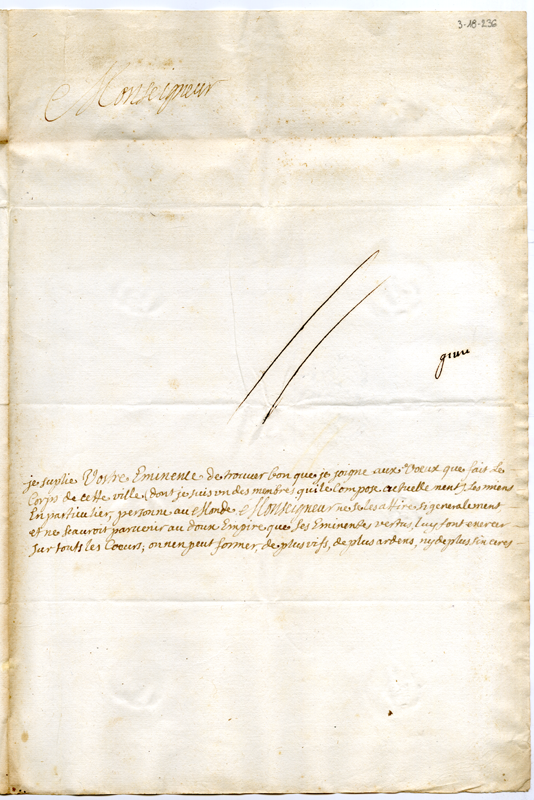 3-18-236
Monseigneur
je suplie Vostre Eminence de trouver bon que je joigne aux Voeux que fait le
Corps de cette ville (dont je suis un des membres qui le Compose actuellement) Les miens
En particulier, persone au Monde, Monseigneur ne se les attire si generalement
et ne scauroit parvenir au doux Empire que ses Eminentes vertus luy font exercer
sur touts les Coeurs, on n'en peut former, de plus vifs, de plus ardens, ny de plus sinceres -